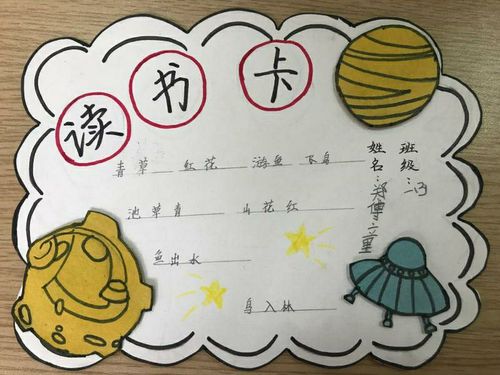 读书卡
青草 红花 游鱼 飞鸟
池草青 山花红
鱼出水
鸟入林
班级：
姓名：郑博